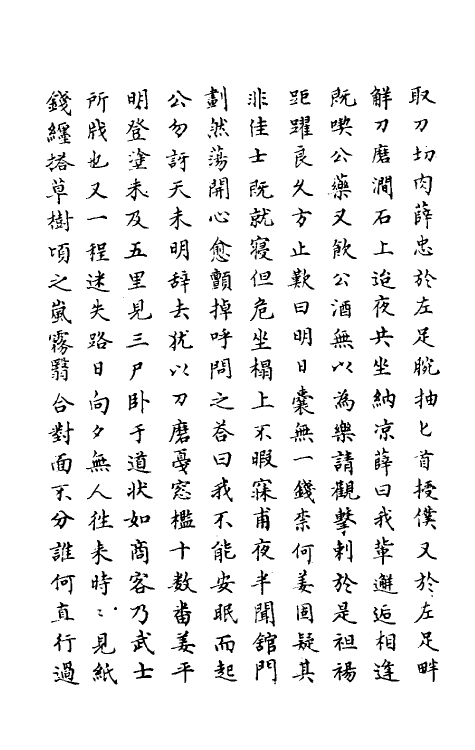 取刀切肉薛忠於左足腕抽匕首授僕又於左足畔
解刀磨澗石上迨夜共坐納凉薛曰我輩邂逅相逢
既喫公藥又飲公酒無以為樂請觀擊刺於是袒裼
距躍良久方止歎曰明日囊無一錢柰何姜固疑其
非佳士既就寝但危坐榻上不暇寐甫夜半聞舘門
劃然蕩開心愈顫掉呼問之荅曰我不能安眠而起
公勿訝天未明辞去犹以刀磨戛窓檻十數畨姜平
明登塗未及五里見三尸卧于道状如商客乃武士
所戕也又一程迷失路日向夕無人徃来時〻見紙
錢纏搭草樹頃之嵐霧翳合對面不分誰何直行過